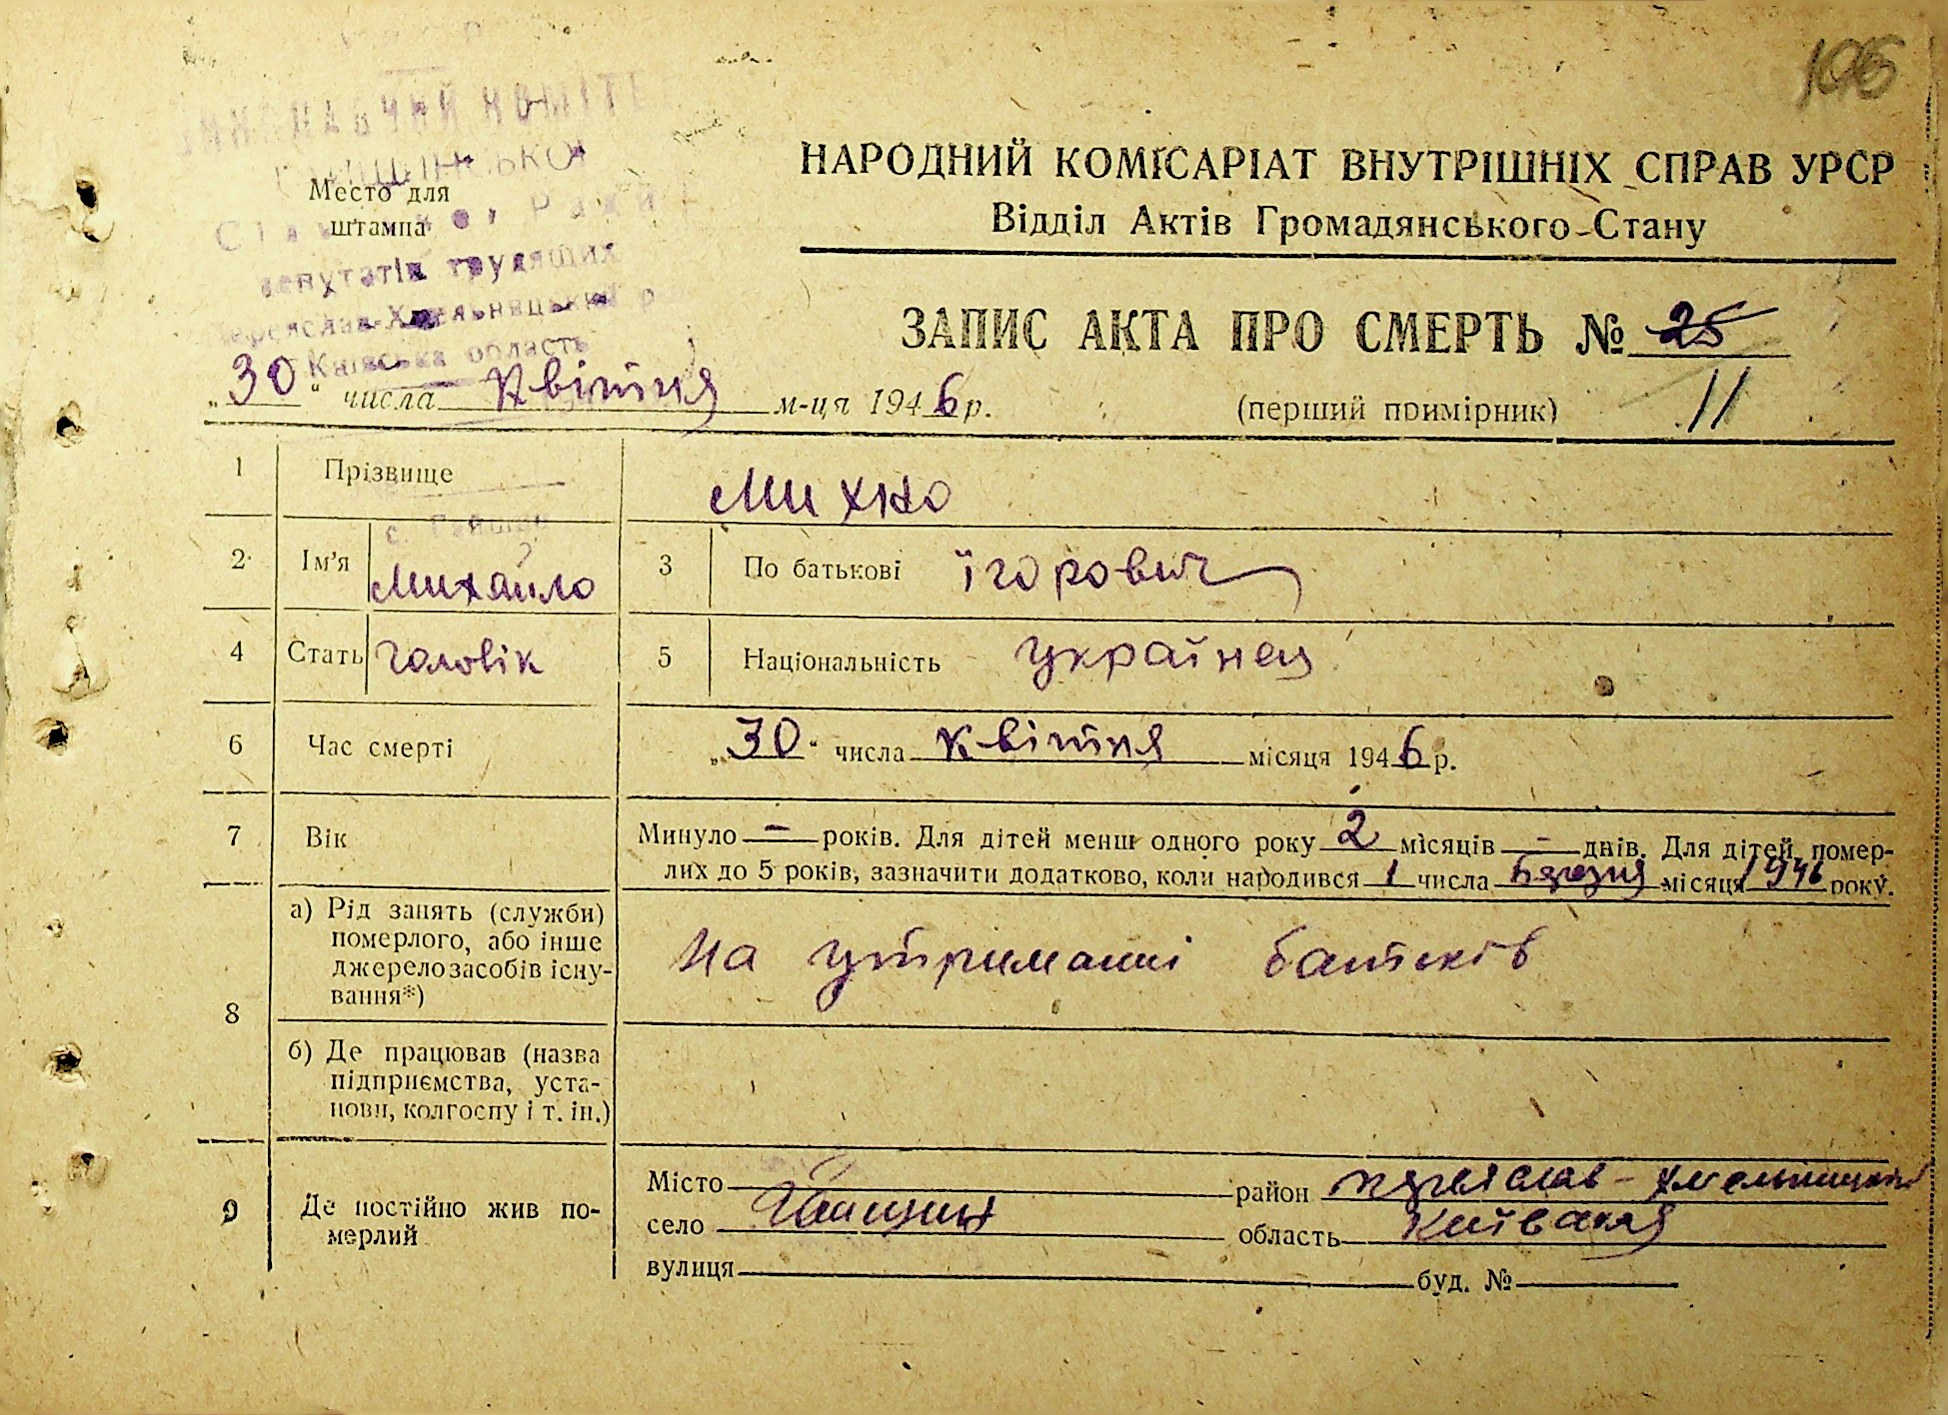 106
НАРОДНИЙ КОМІСАРІАТ ВНУТРІШНІХ СПРАВ УРСР
Відділ Актів Громадянського Стану
Место для
штампа
депутатів трудящих
Київська область
ЗАПИС АКТА ПРО СМЕРТЬ № 25
11
„30“ числа Квітня м-ця 1946 р. (перший примірник)
1 Прізвище Михно
2 Ім'я Михайло 3 По батькові Їгорович
4 Стать Чоловік 5 Національність Українец
6 Час смерті „30“ числа Квітня місяця 1946 р.
7 Вік Минуло - років. Для дітей менш одного року 2 місяців - днів. Для дітей, помер-
лих до 5 років, зазначити додатково, коли народився 1 числа Березня місяця 1946 року.
8 а) Рід занять (служби)
померлого, або інше
джерело засобів існу-
вання*)
На утриманні батьків
б) Де працював (назва
підприємства, уста-
нови, колгоспу і т. ін.)
9 Де постійно жив по-
мерлий
Місто район Переяслав-Хмельницький
село Гайшин область Київська
вулиця буд. №